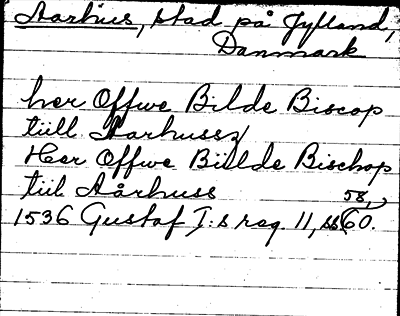 Aarhus, stad på Jylland,
Danmark
her Offwe Bilde Biscop
tiill Aarhussz
Her Offwe Biilde Bischop
tiil Aårhuss
58,
1536 Gustaf I:s reg. 11, ss 60.